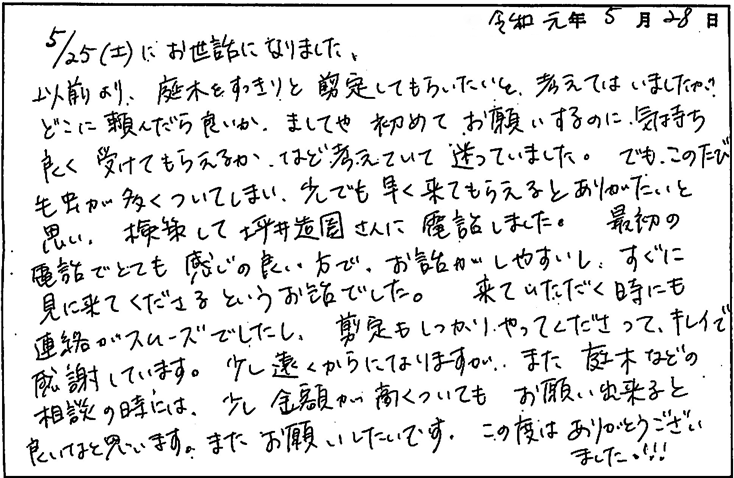 令和 元年 5 月 28 日
5/25(土)に お世話になりました。
以前より、庭木をすっきりと 剪定してもらいたいと、考えてはいましたが
どこに 頼んだら良いか、ましてや 初めて お願いするのに、気持ち
良く 受けてもらえるか、など考えていて 迷っていました。 でも、このたび
毛虫が多くついてしまい、少しでも 早く来てもらえるとありがたいと
思い、検索して 坪井造園さんに 電話しました。 最初の
電話でとても 感じの良い 方で、お話がしやすいし、すぐに
見に来てくださるというお話でした。 来ていただく時にも
連絡がスムーズでしたし、剪定もしっかりやってくださって、キレイで
感謝しています。 少し遠くからになりますが、また 庭木などの
相談の時には、少し 金額が高くついても お願い出来ると
良いなと思います。また お願いしたいです。 この度は ありがとうござい
ました。!!!